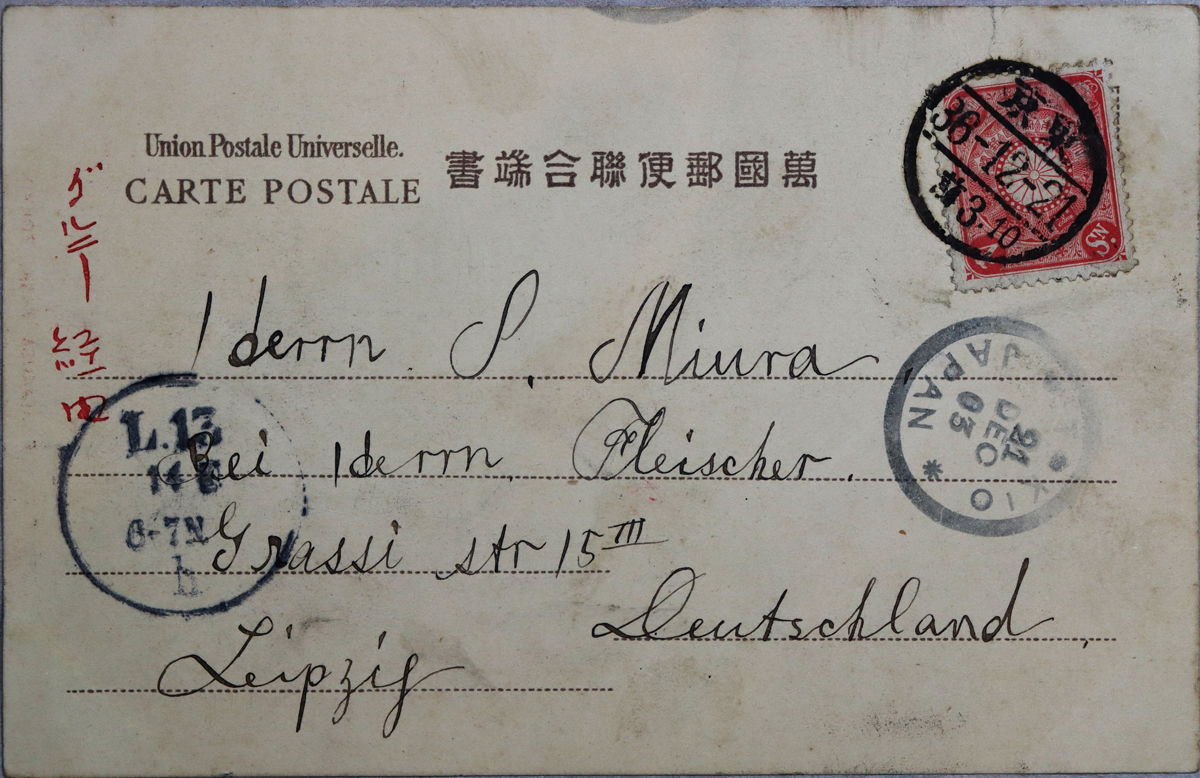 Union Postale Universelle.
CARTE POSTALE
萬國郵便聯合端書
東京
36-12-21
3-10
Sn.
Herrn S. Miura
bei Herrn Fleischer.
Grassi str 15 III
Leipzig
Deutschland,
経由
L.13
6-7N
JAPAN
21
DEC
03